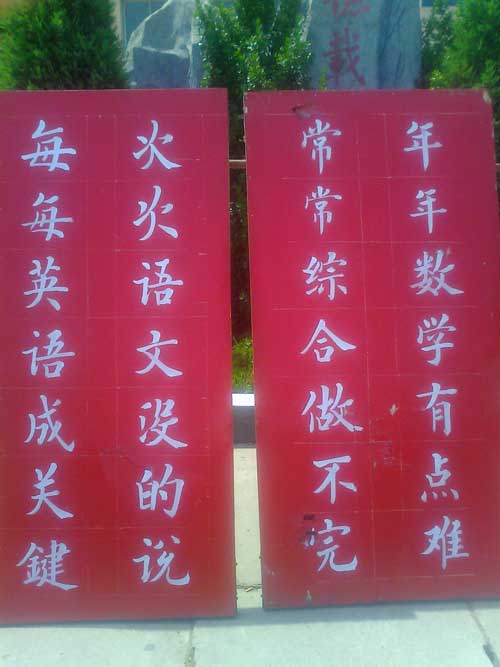 載
年年数学有点难
常常综合做不完
次次语文没的说
每每英语成关鍵